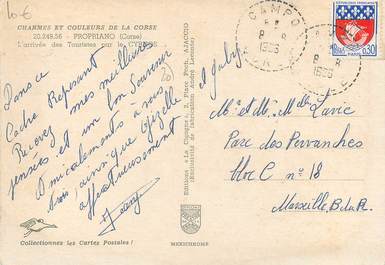 10 €
CHARMES ET COULEURS DE LA CORSE
20.249.56 - PROPRIANO (Corse)
L'arrivée des Touristes par le CYRNOS
Dans ce
Cadre Reposant
Recevez mes meilleures
pensées et un bon Souvenir
Amicalement à vous
trois, ainsi que Gizelle
affectueusement
20
Editions « La Cigogne », Place Foch, AJACCIO
(Exclusivité de fabrication André Leconte)
CAMPO
8 - 8
1966
CAMPO
8 - 8
1966
REPUBLIQUE FRANÇAISE
PARIS 0,30
Mr et Me Lavie
Parc des Pervanches
bloc C n° 18
Marseille B.du R.
Collectionnez les Cartes Postales !
MEXICHROME